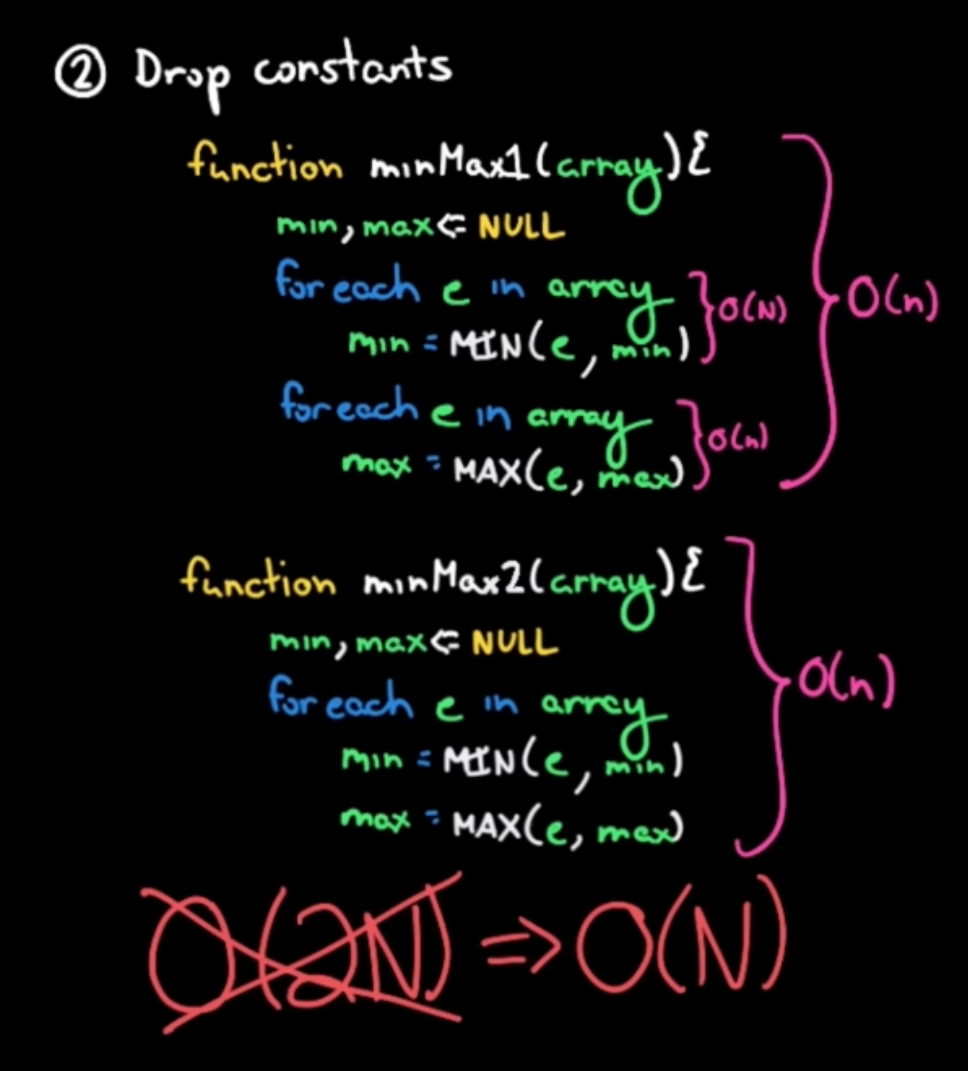 ② Drop constants
function minMax1(array){
min, max ⇐ NULL
for each e in array
min = MIN(e, min)
O(N)
for each e in array
max = MAX(e, max)
O(n)
O(n)
function minMax2(array){
min, max ⇐ NULL
for each e in array
min = MIN(e, min)
max = MAX(e, max)
O(n)
O(2N) => O(N)